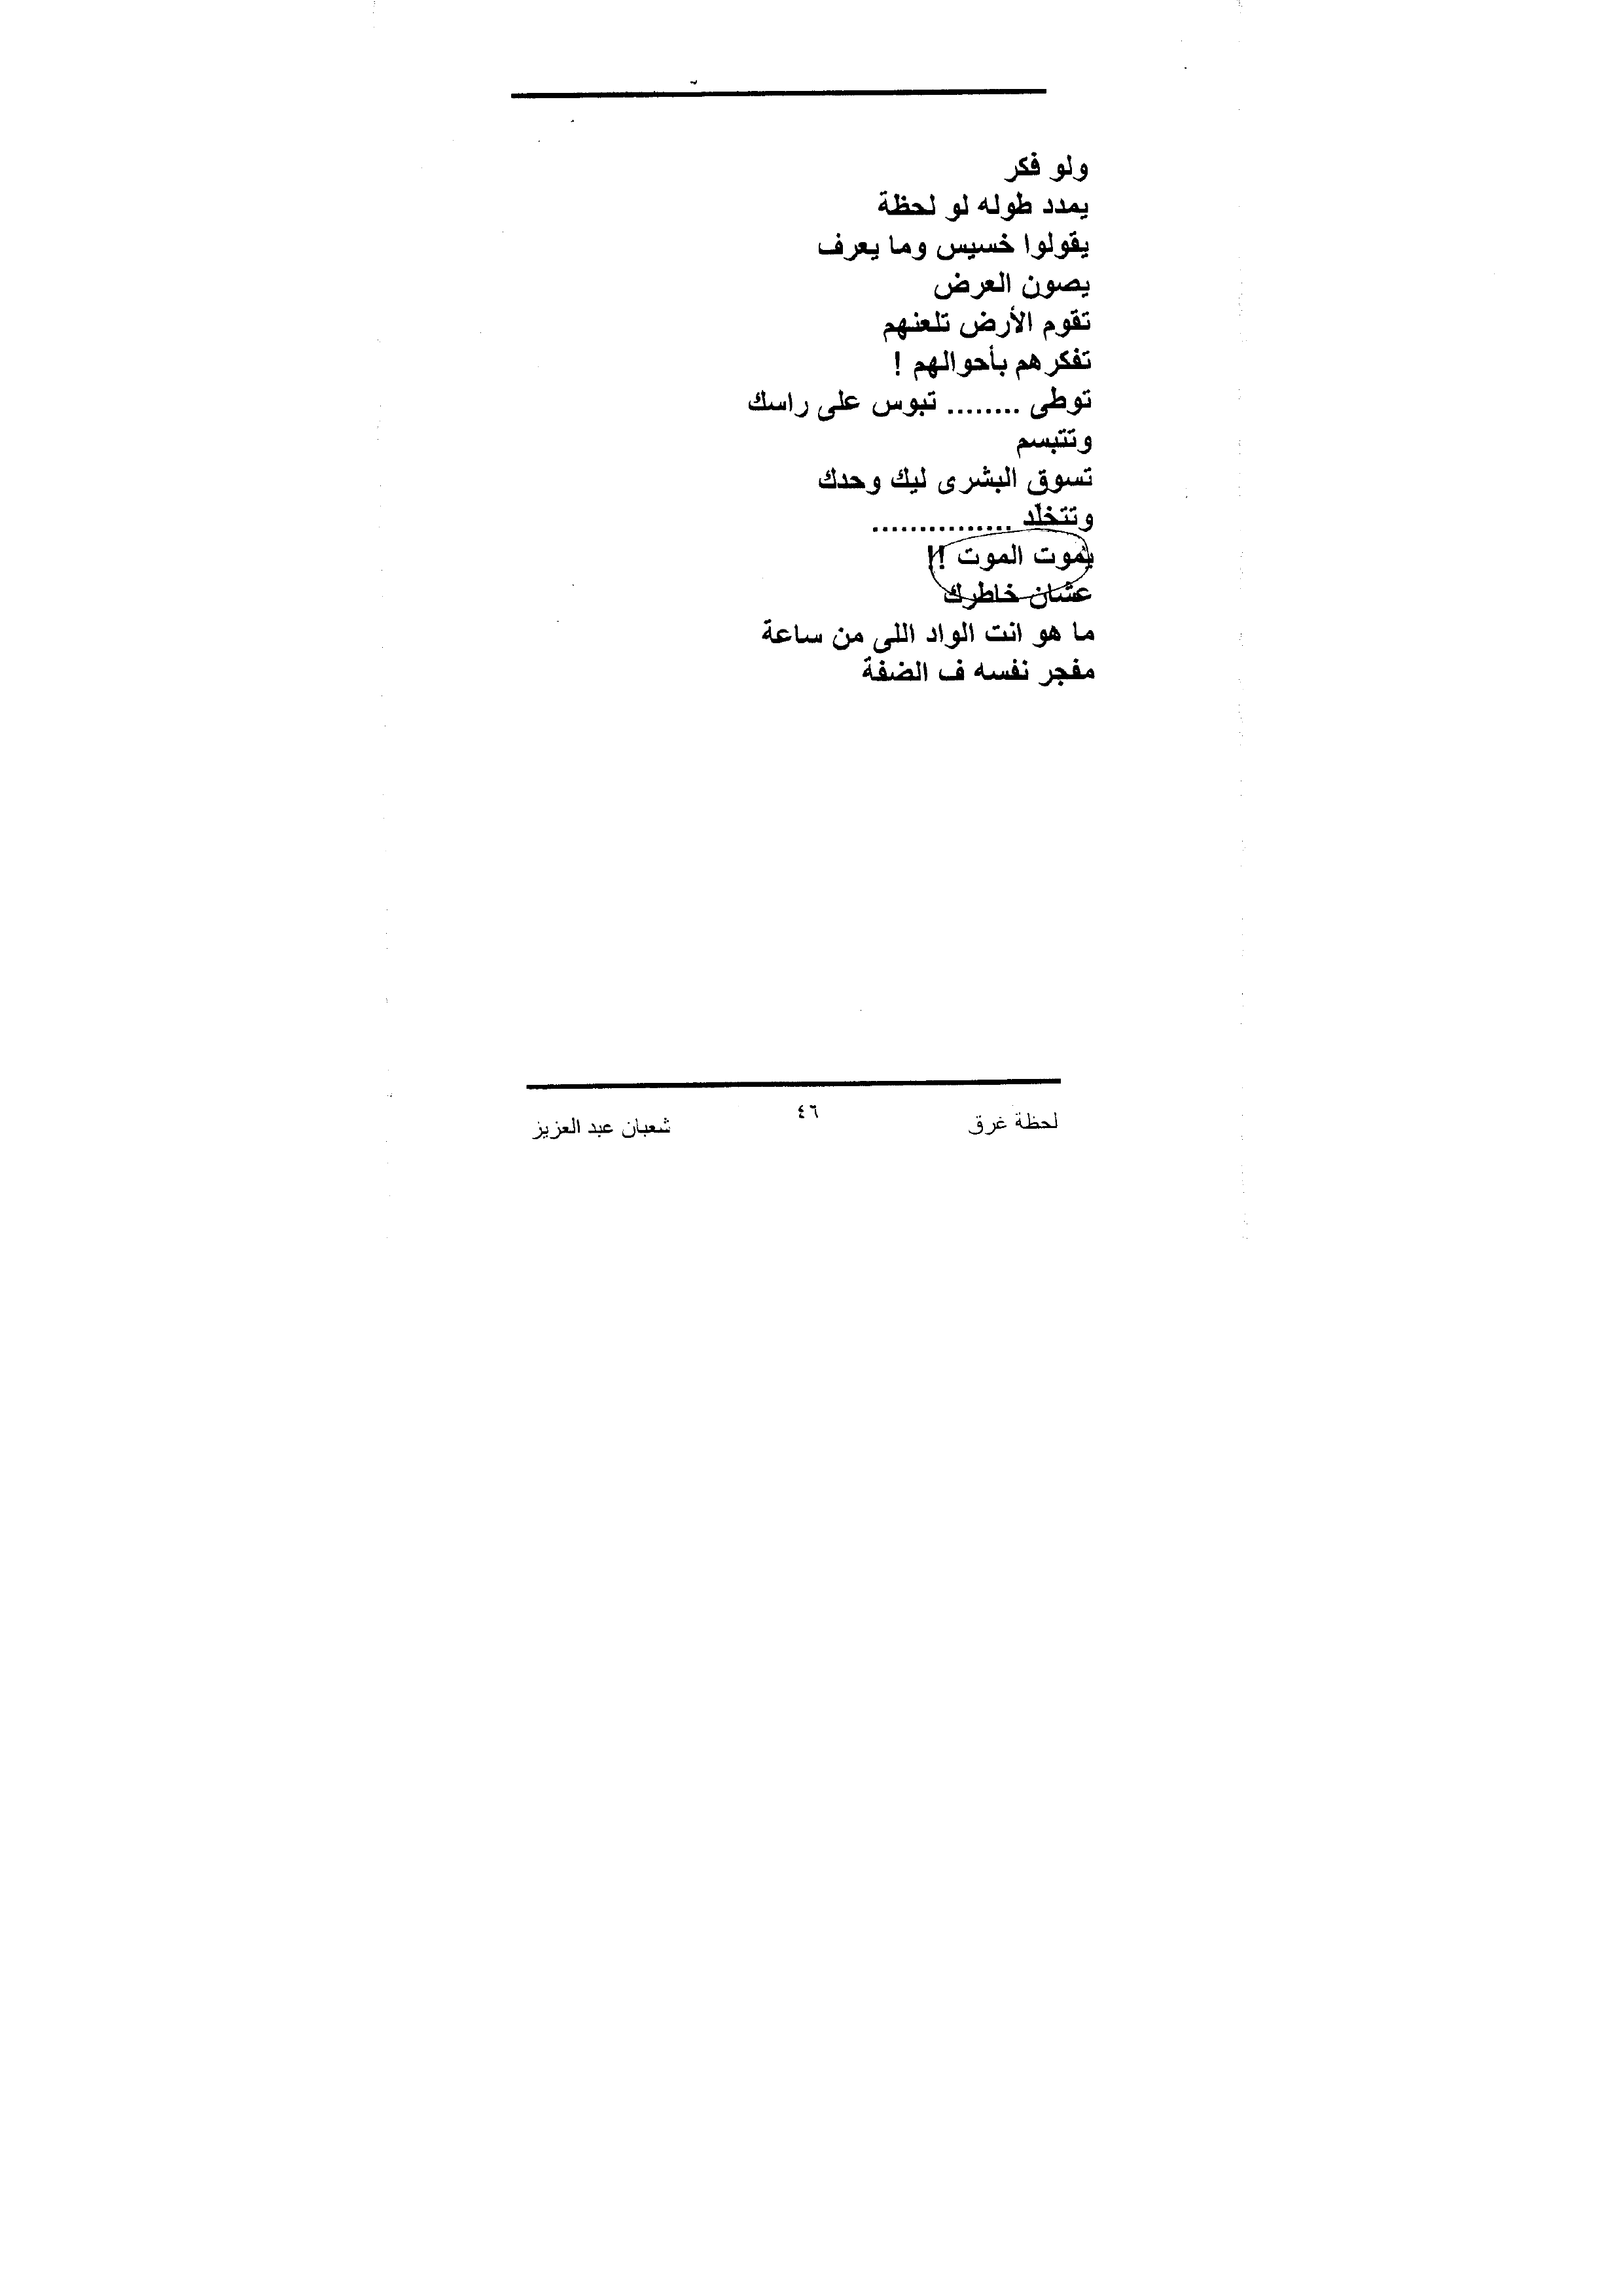 ولو فكر
يمدد طوله لو لحظة
يقولوا خسيس وما يعرف
يصون العرض
تقوم الأرض تلعنهم
تفكرهم بأحوالهم !
توطى ........ تبوس على راسك
وتتبسم
تسوق البشرى ليك وحدك
وتتخلّد ...............
يموت الموت !!
عشان خاطرك
ما هو انت الواد اللى من ساعة
مفجر نفسه ف الضفة
لحظة غرق ٤٦ شعبان عبد العزيز